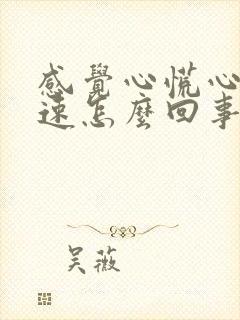 感覺心慌心
速怎麼回事
吴薇